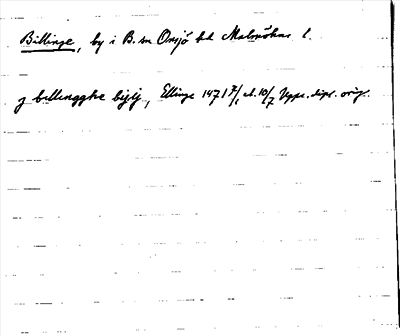 Billinge, by i B. sn Onsjö hd Malmöhus l.
j billingghe bijij, Ellinge 1471 7/1 el. 10/7 Upps. dipl. orig.